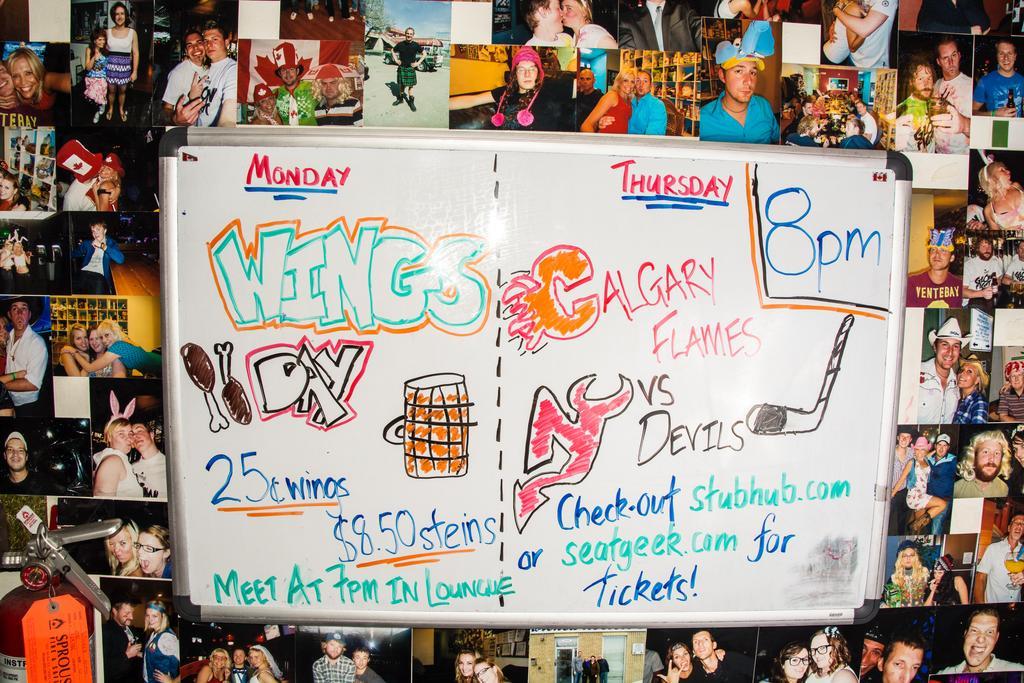 MONDAY
WINGS
DAY
25¢ wings
$8.50 steins
MEET AT 7PM IN LOUNGUE
THURSDAY
8pm
CALGARY
FLAMES
VS
DEVILS
Check-out stubhub.com
or seatgeek.com for
tickets!
TEBAY
VENTEBAY
SPROU
INSTR